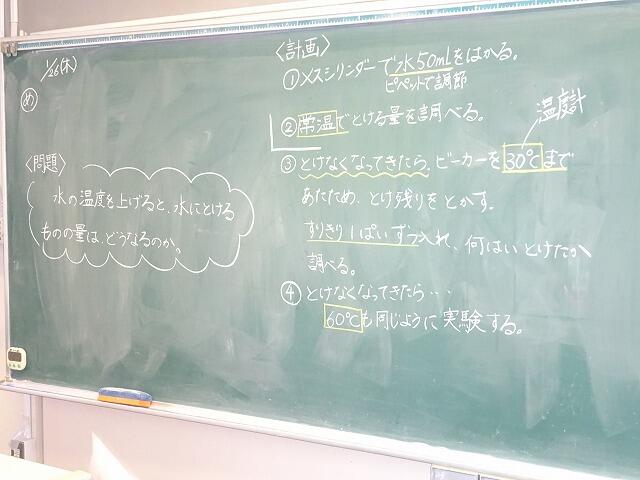 1/26(木)
め
〈問題〉
水の温度を上げると、水にとける
ものの量は、どうなるのか。
〈計画〉
① メスシリンダーで水50mLをはかる。
ピペットで調節
② 常温でとける量を調べる。
温度計
③ とけなくなってきたら、ビーカーを30℃まで
あたため、とけ残りをとかす。
すりきり1ぱいずつ入れ、何はいとけたか
調べる。
④ とけなくなってきたら…
60℃も同じように実験する。